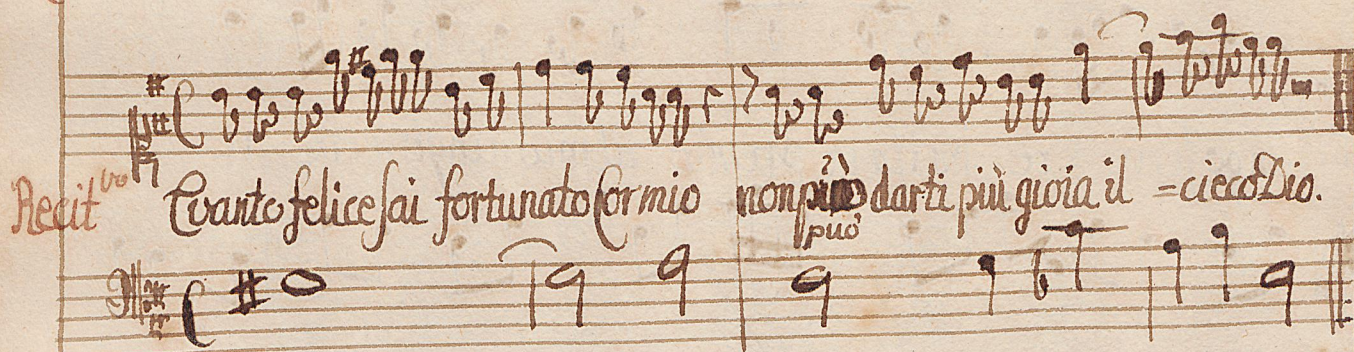 Recit.vo Quanto felice sai fortunato Cor mio non può darti più gioia il =cieco Dio.
può